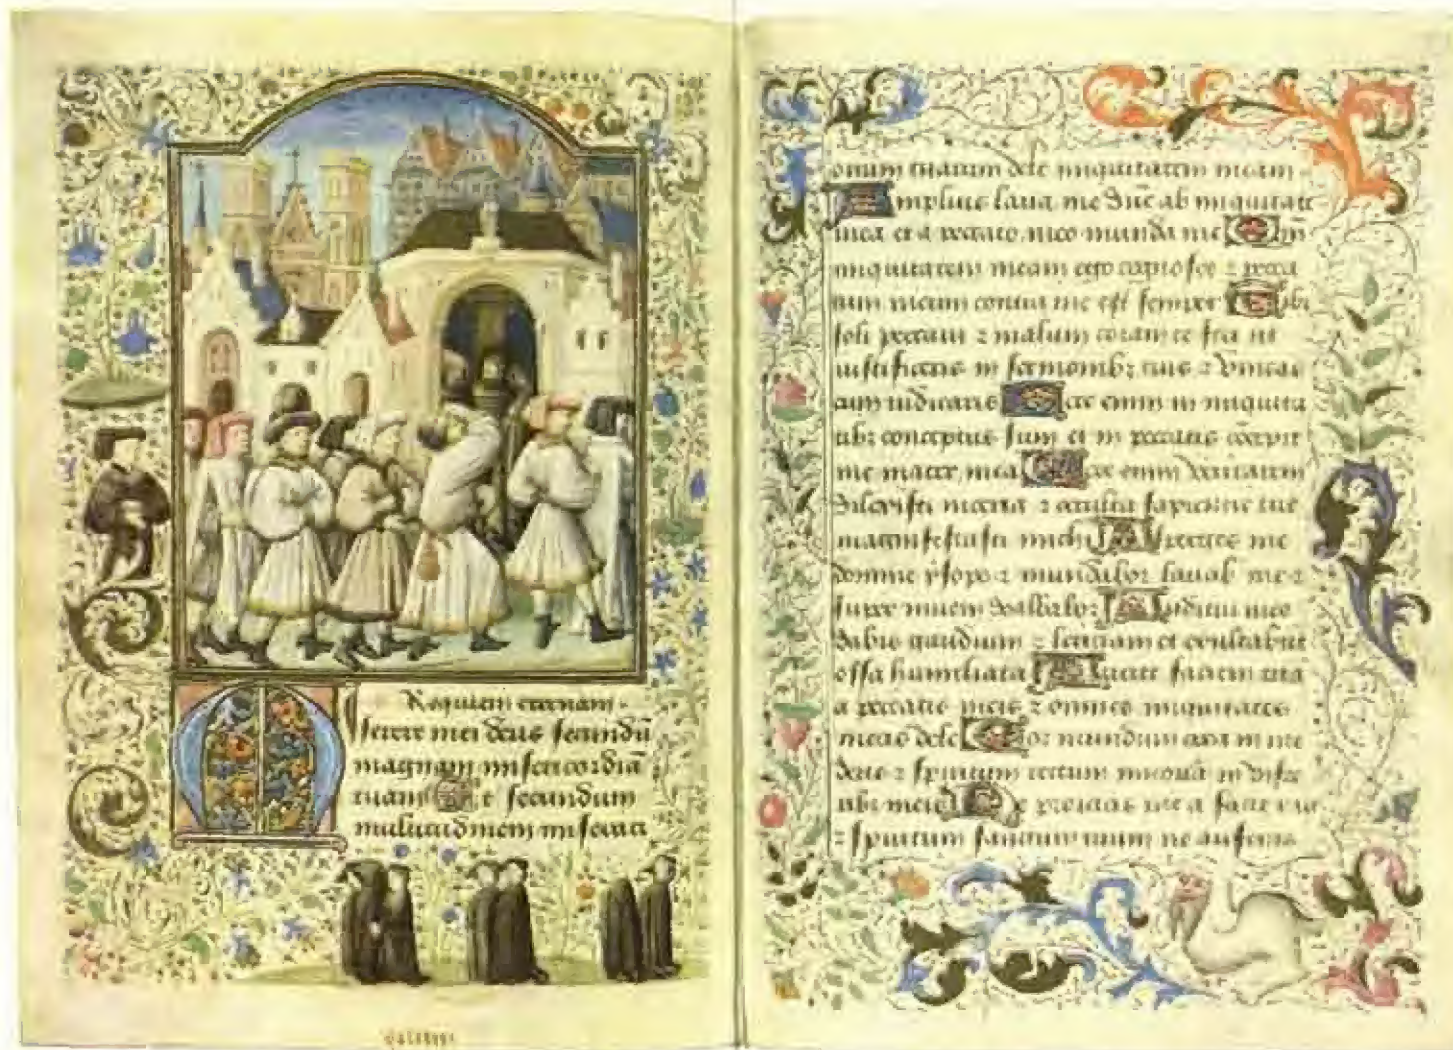 Requiem eternam.
Miserere mei deus secundū
magnam misericordiā
tuam Et secundum
multitudinem miserati
onum tuarum dele iniquitatem meam.
Amplius laua me ab iniquitate
mea et a peccato meo munda me
iniquitatem meam ego cognosco z pecca
tum meum contra me est semper Tibi
soli peccaui z malum coram te feci ut
iustificeris in sermonibz tuis z vincas
cum iudicaris Ecce enim in iniquita
tibz conceptus sum et in peccatis
me mater mea Ecce enim veritatem
dilexisti incerta z occulta sapientie tue
manifestasti michi Asperges me
domine ysopo z mundabor lauabis me z
super niuem dealbabor Auditui meo
dabis gaudium z leticiam et exultabunt
ossa humiliata Auerte faciem tuā
a peccatis meis z omnes iniquitates
meas dele Cor mundum crea in me
deus z spiritum rectum innoua in visce
ribz meis Ne proicias me a facie tua
z spiritum sanctum tuum ne auferas